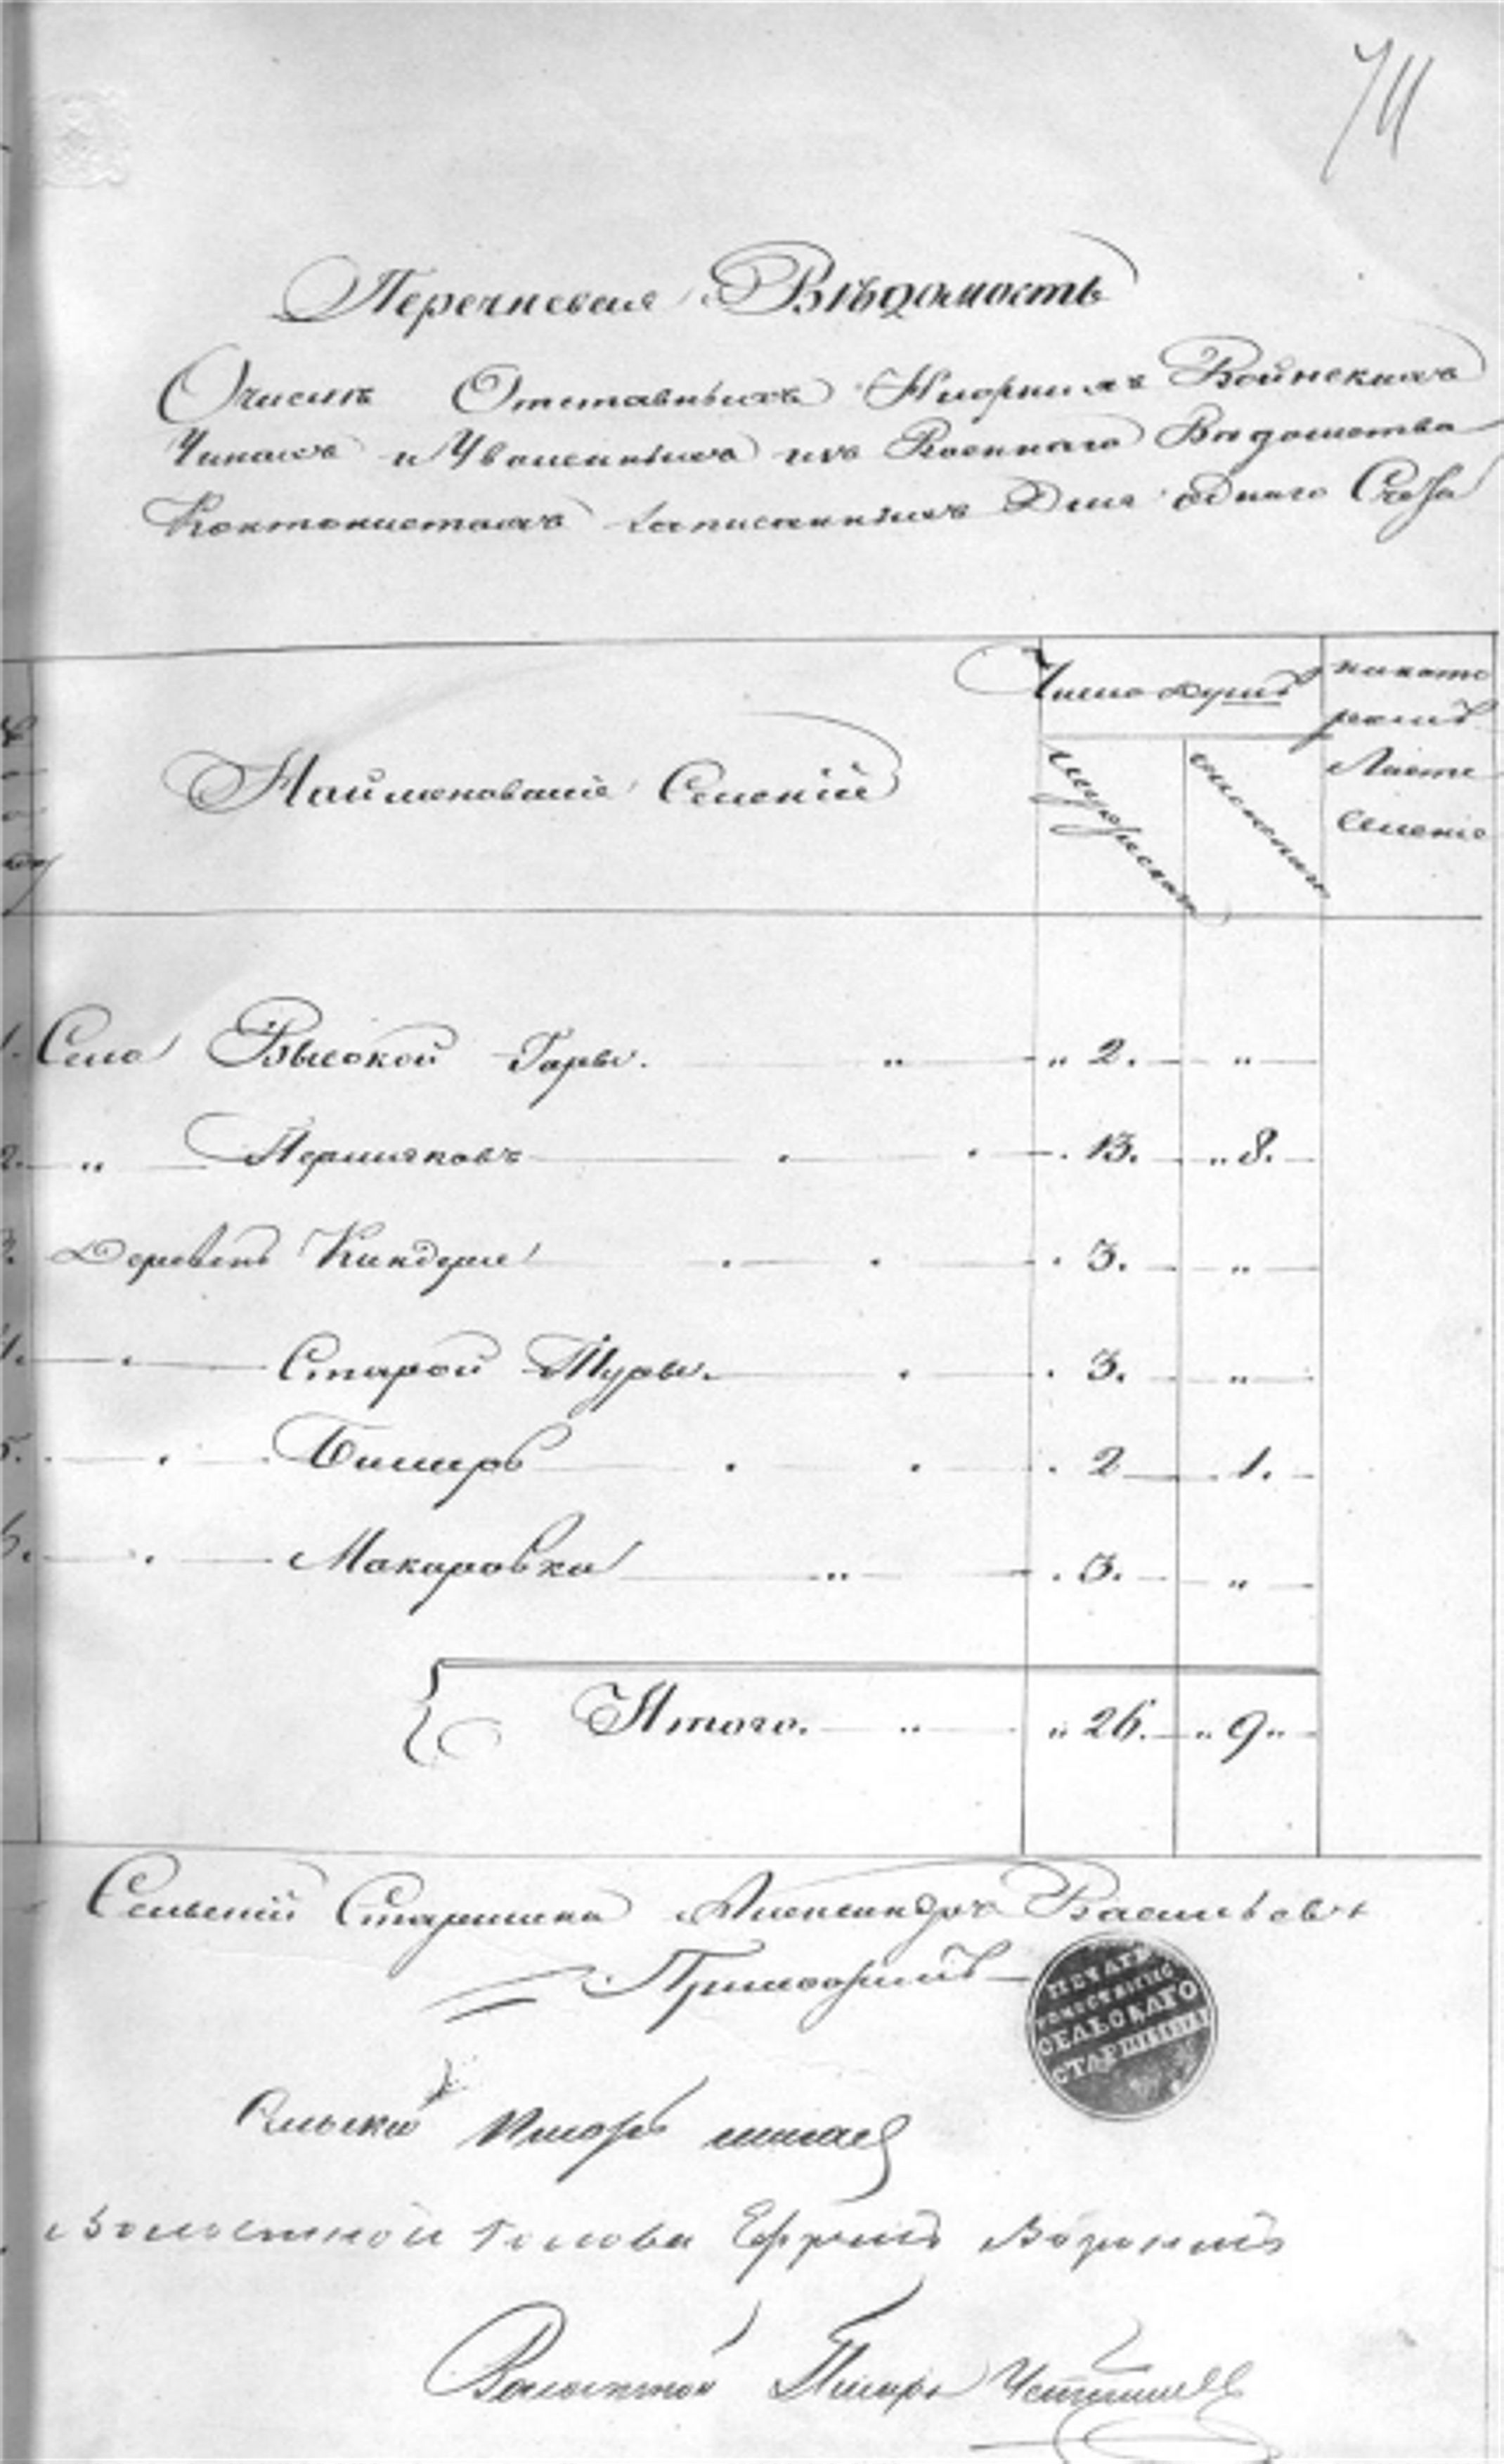 74
Перечневая Вѣдомость
Очислѣ Отставныхъ Нижнихъ Воинскихъ
Чинахъ и Уволенныхъ изъ Военнаго Вѣдомства
Контонистахъ записанныхъ Для однаго Счета
Наименованіе Селеній
Число душъ
мужеска
женскаго
на кото
ромъ
Листе
Селеніе
1. Село Высокой Горы. „ „ 2. „
2. „ Пермяковъ . 13. „ 8.
3. Деревень Киндери . 3. „
4. Старой Туры. . 3. „
5. Бимерь . 2 1.
6. Макаровка „ . 3. „
Итого. „ „ 26. „ 9 „
Сельскій Старшина Александръ Васильевъ
Приложилъ
ПЕЧАТЬ
СЕЛЬСКАГО
СТАРШИНЫ
Сельски Писарь
Волостной Голова Ефремъ
Волостной Писарь